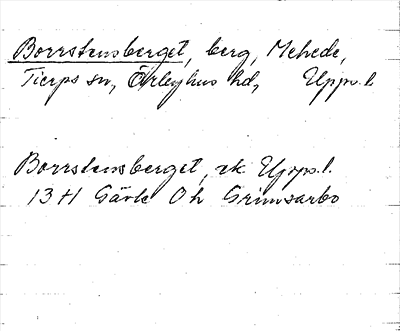 Borrstensberget, berg, Mehede,
Tierps sn, Örbyhus hd, Upps. l.
Borrstensberget, ek Upps. l.
13 H Gävle 0 h Grimsarbo